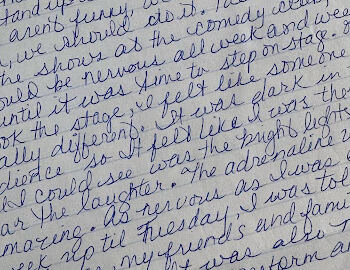 tand up
aren't funny, w
n, we should do it.
the shows at the comedy club,
ould be nervous all week and wee
until it was time to step on stage.
ook the stage, I felt like someone
ally different. It was dark in
dience so it felt like I was the
ll I could see was the bright lights
ar the laughter. The adrenaline
mazing. As nervous as I was
eek up til Tuesday, I was tol
my friends and fami
It was also
form a